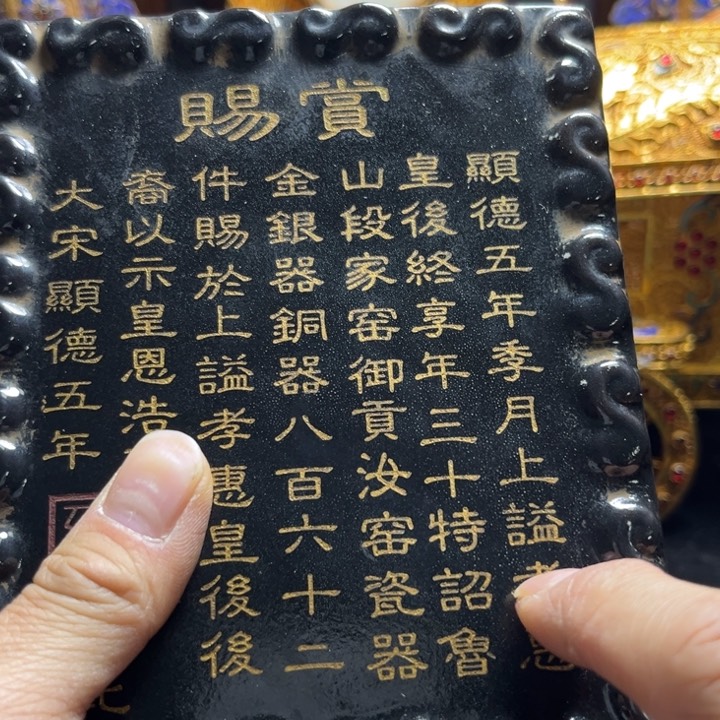 賞賜
顯德五年季月上謚孝惠
皇後終享年三十特詔魯
山段家窑御貢汝窑瓷器
金銀器銅器八百六十二
件賜於上謚孝惠皇後後
裔以示皇恩浩
大宋顯德五年